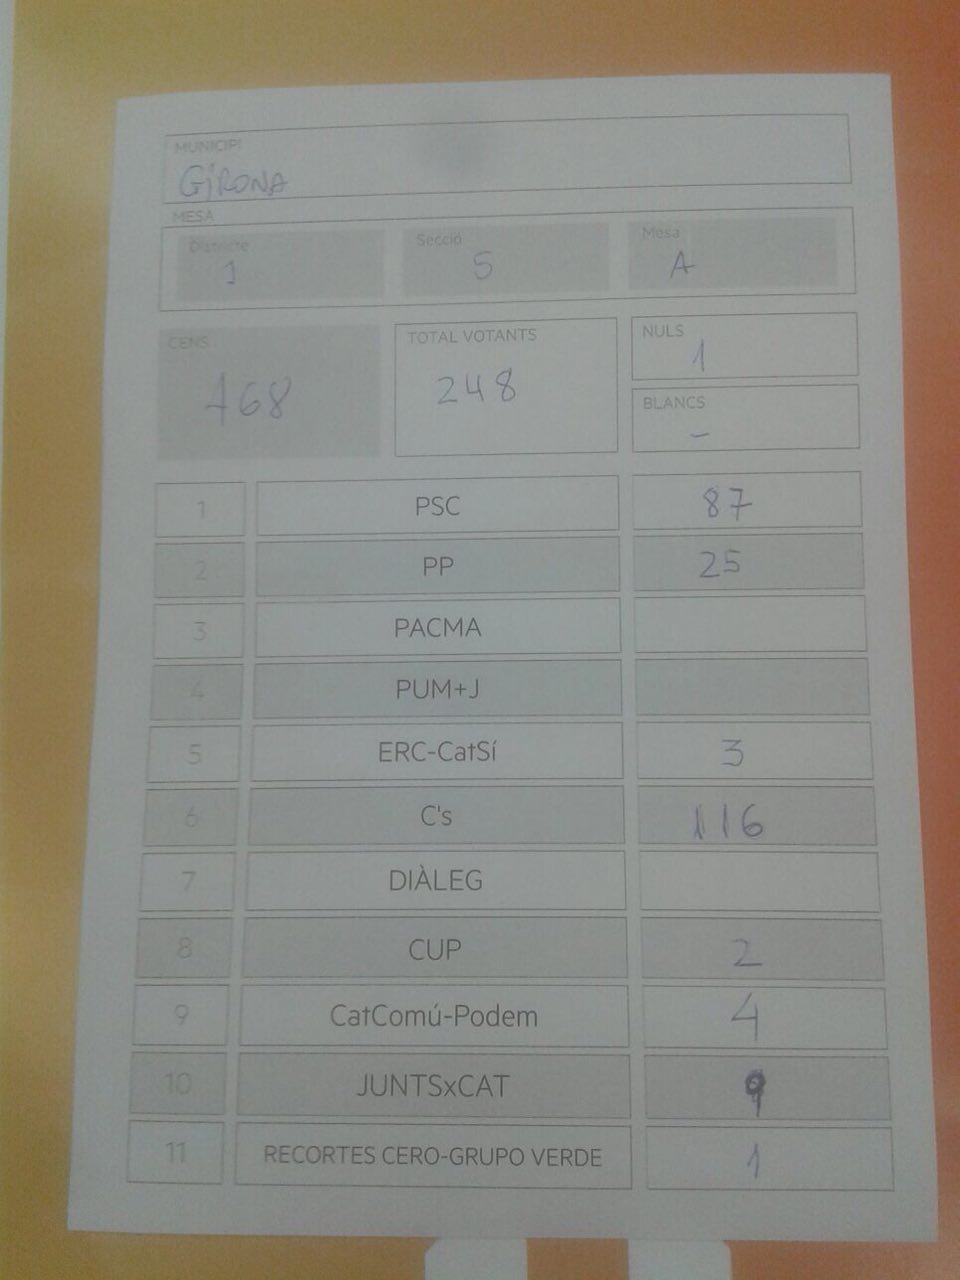 MUNICIPI
GIRONA
MESA
Districte Secció Mesa
1 5 A
CENS TOTAL VOTANTS NULS
248 1
BLANCS
-
1 PSC 87
2 PP 25
3 PACMA
4 PUM+J
5 ERC-CatSí 3
6 C's 116
7 DIÀLEG
8 CUP 2
9 CatComú-Podem 4
10 JUNTSxCAT 9
11 RECORTES CERO-GRUPO VERDE 1